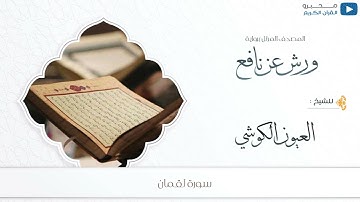 محبرو
القرآن الكريم
المصحف المرتل برواية
ورش عن نافع
للشيخ :
العيون الكوشي
سورة لقمان